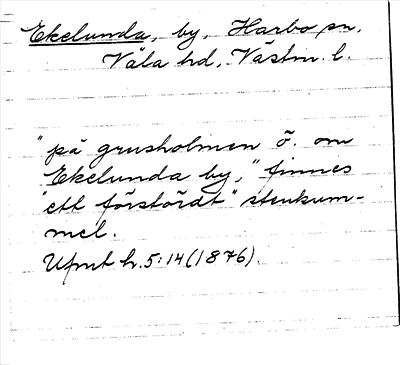 Ekelunda, by, Harbo sn.
Våla hd, Västm. l.
"på grusholmen ö. om
Ekelunda by," finnes
"ett förstördt" stenkum-
mel.
Ufmt h. 5:14 (1876).